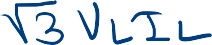 √3 VL IL